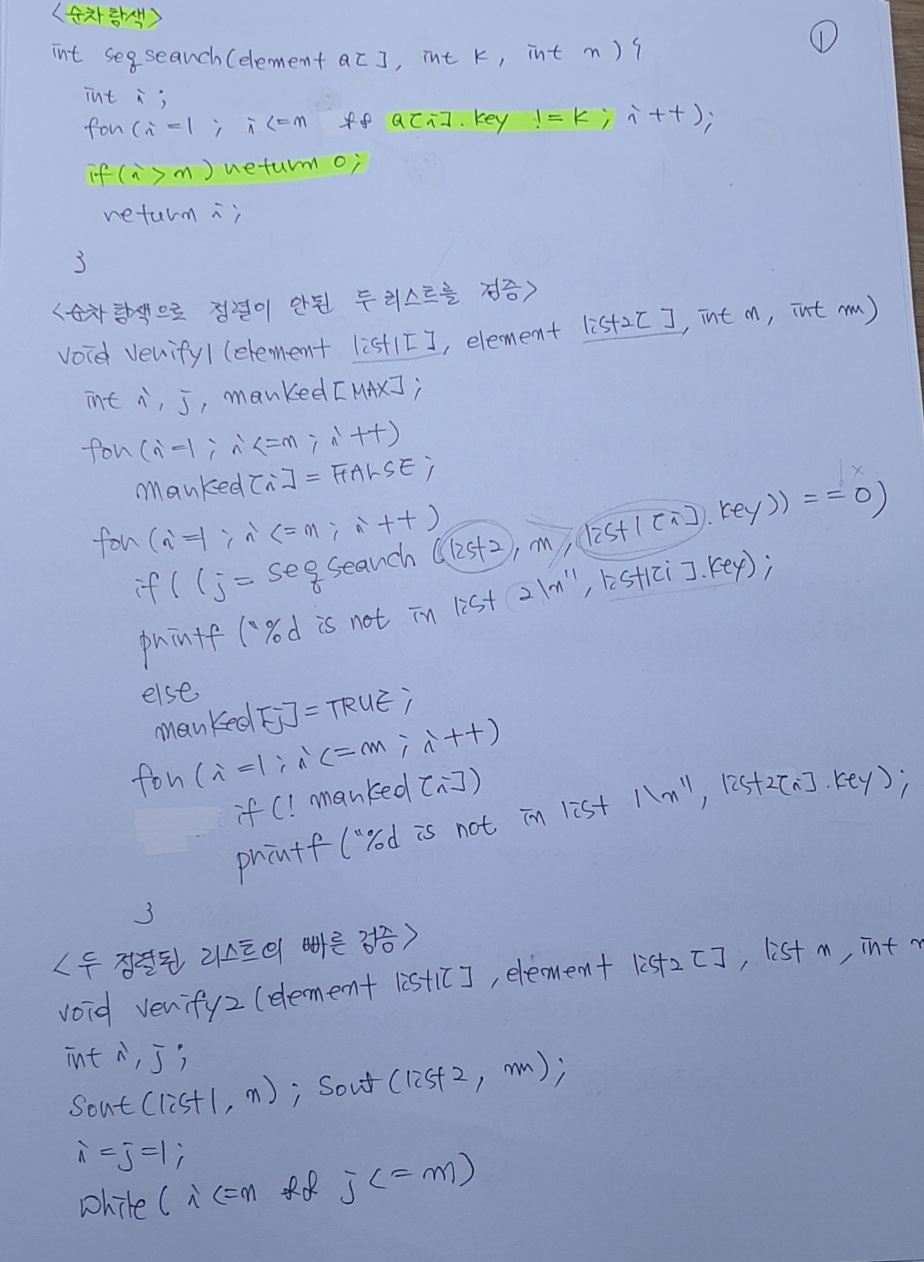 <순차탐색>
①
int seqsearch(element a[], int k, int n){
int i;
for(i=1; i<=n && a[i].key != k; i++);
if(i>n) return 0;
return i;
}
<순차 탐색으로 정렬이 안된 두 리스트를 검증>
void verify1(element list1[], element list2[], int n, int m)
int i, j, marked[MAX];
for(i=1; i<=m; i++)
marked[i] = FALSE;
for(i=1; i<=n; i++)
if((j = seqsearch(list2, m, list1[i].key)) == 0)
printf("%d is not in list 2\n", list1[i].key);
else
marked[j] = TRUE;
for(i=1; i<=m; i++)
if(! marked[i])
printf("%d is not in list 1\n", list2[i].key);
}
<두 정렬된 리스트의 빠른 검증>
void verify2(element list1[], element list2[], list n, int
int i, j;
Sort(list1, n); Sort(list2, m);
i=j=1;
while(i<=n && j<=m)